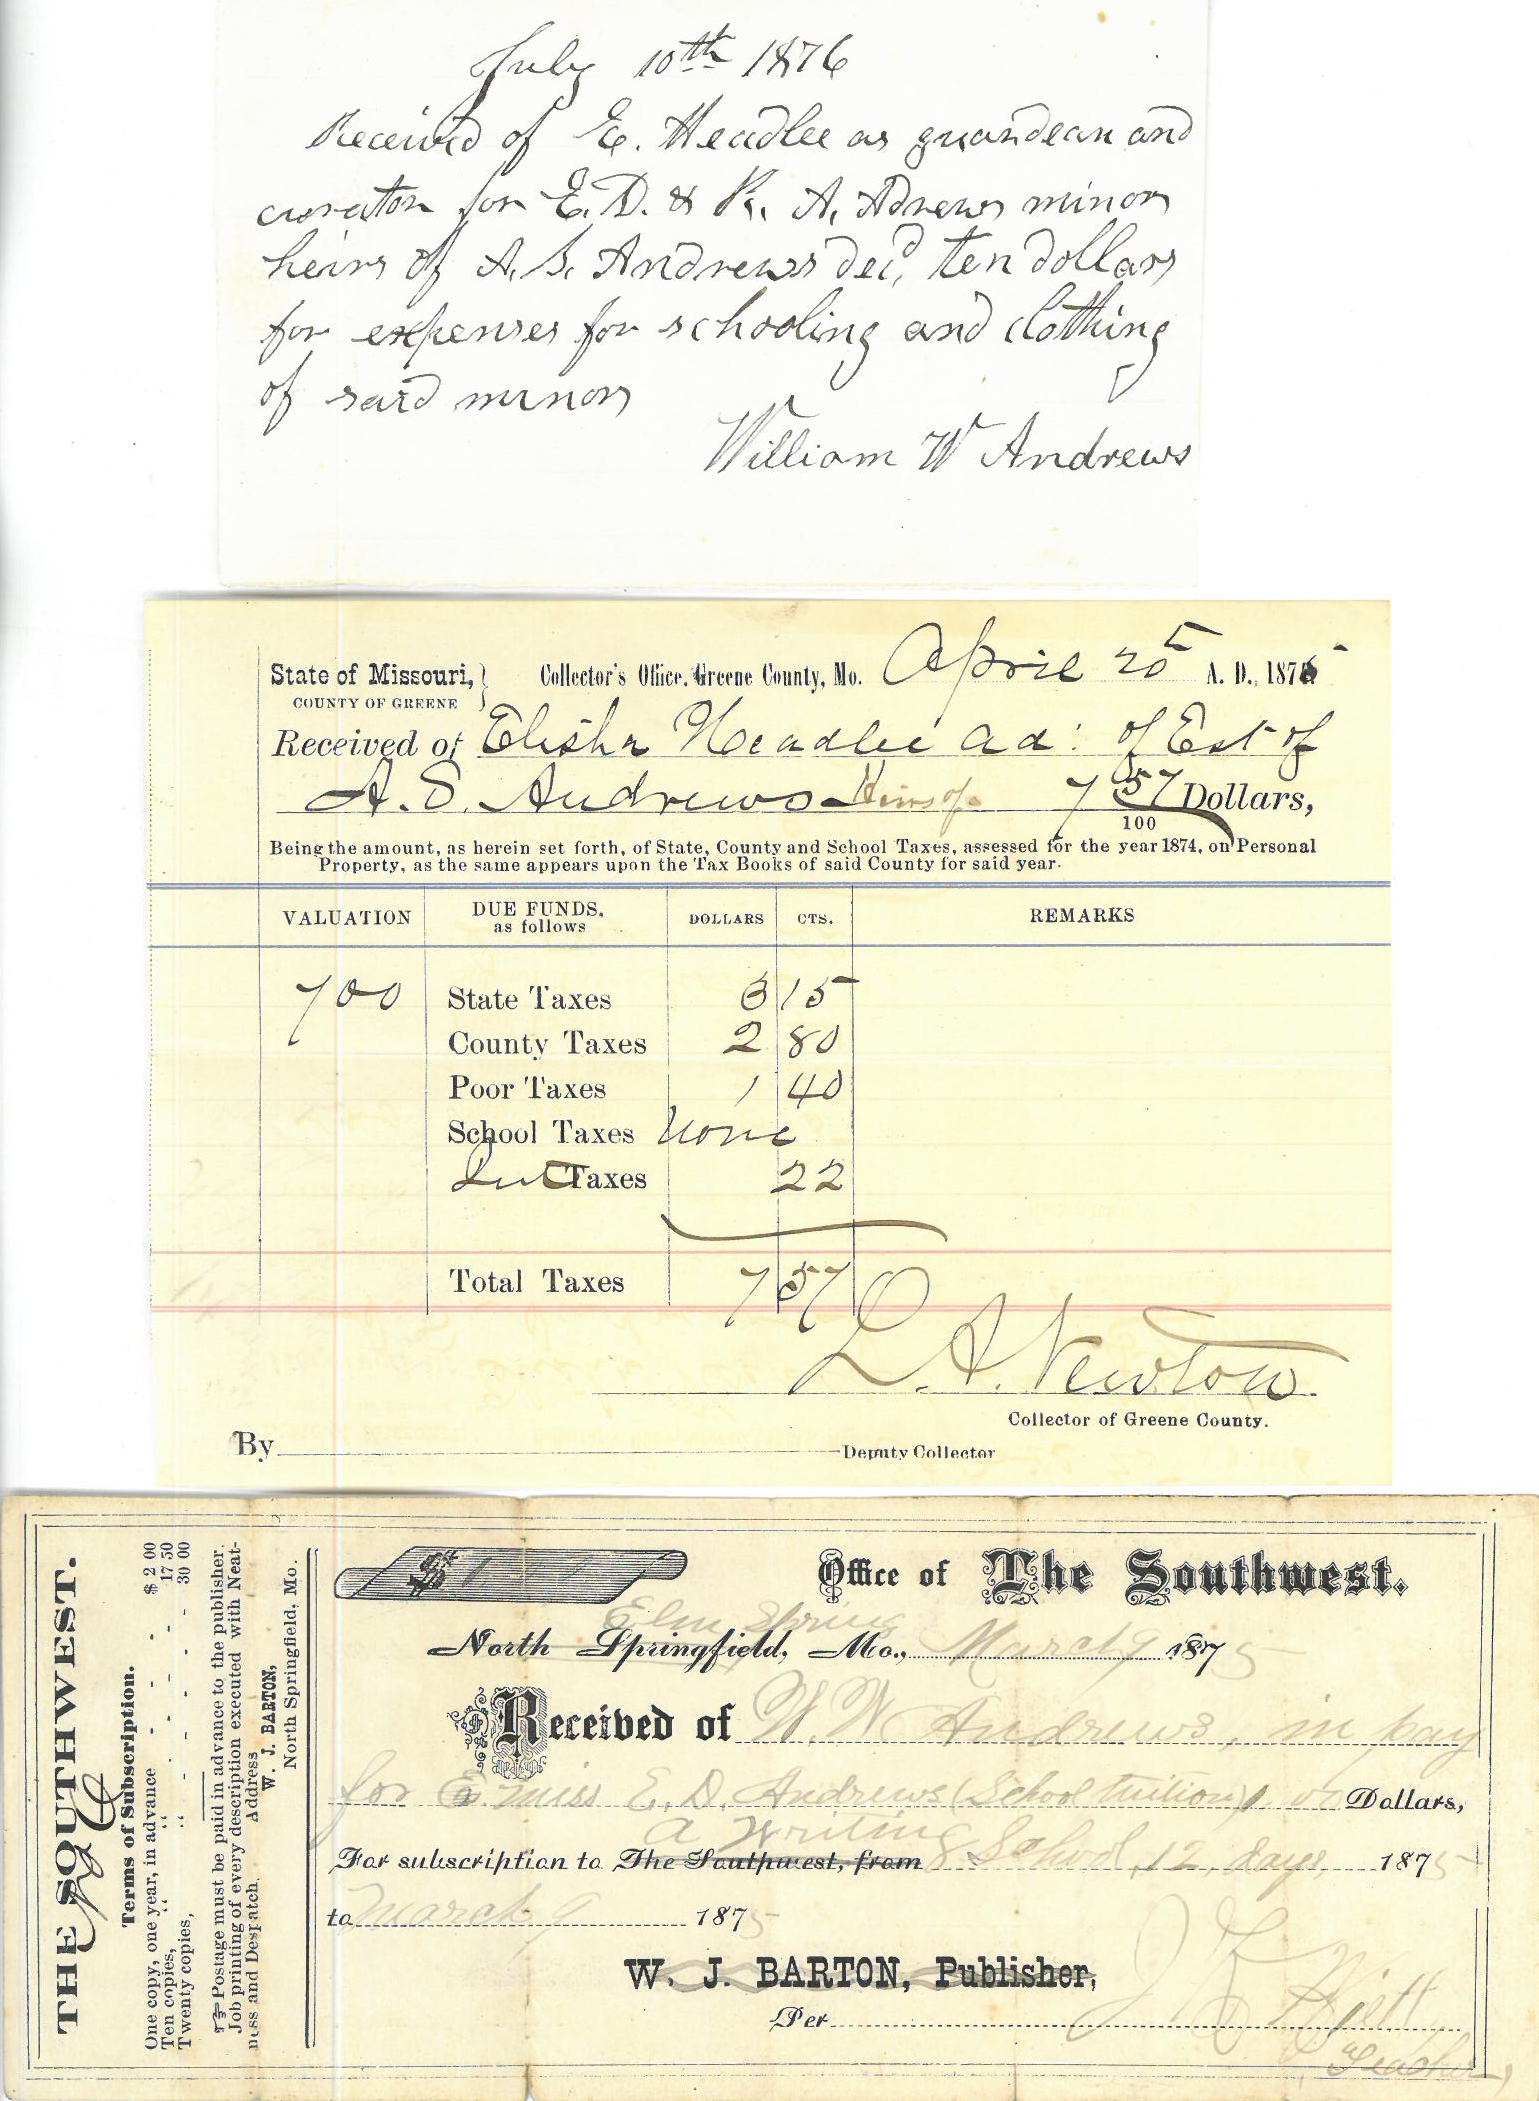 July 10th 1876
Received of E. Headlee as guardean and
curator for E. D. & R. A. Adrews minor
heirs of A. S. Andrews decd, ten dollars
for expenses for schooling and clothing
of said minors
William W Andrews
State of Missouri, } Collector's Office, Greene County, Mo. April 20 A. D., 1875
COUNTY OF GREENE
Received of Elisha Headlee ad. of Est of
A. S. Andrews Heirs of 7 57/100 Dollars,
Being the amount, as herein set forth, of State, County and School Taxes, assessed for the year 1874, on Personal
Property, as the same appears upon the Tax Books of said County for said year.
VALUATION DUE FUNDS, as follows DOLLARS CTS. REMARKS
700 State Taxes 3 15
County Taxes 2 80
Poor Taxes 1 40
School Taxes None
Int Taxes 22
Total Taxes 7 57
L. A. Newton
Collector of Greene County.
By Deputy Collector
THE SOUTHWEST.
Terms of Subscription.
One copy, one year, in advance - - - $2 00
Ten copies, " " - - - 17 50
Twenty copies, " - - - 30 00
Postage must be paid in advance to the publisher.
Job printing of every description executed with Neat-
ness and Despatch. Address
W. J. BARTON,
North Springfield, Mo.
Office of The Southwest.
Elm Spring
North Springfield, Mo., March 9 1875
Received of W. W. Andrews, in pay
for miss E. D. Andrews (School tuition) 1 00 Dollars,
a Writing
For subscription to The Southwest, from School, 12, days, 1875
to March 9 1875
W. J. BARTON, Publisher,
Per
Teacher